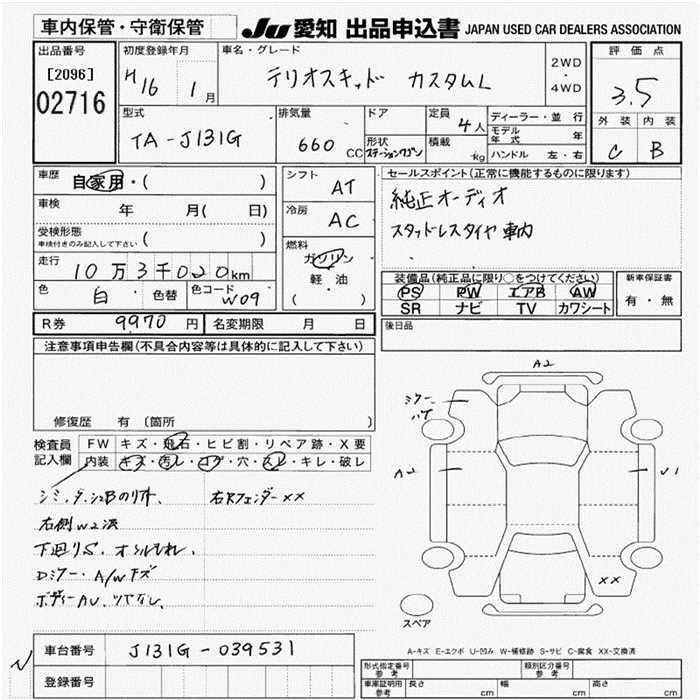 車内保管・守衛保管
JU 愛知 出品申込書 JAPAN USED CAR DEALERS ASSOCIATION
出品番号
[2096]
02716
初度登録年月
H16 1月
車名・グレード
テリオスキッド カスタムL
2WD
・
4WD
評価点
3.5
外装 内装
C B
型式
TA-J131G
排気量
660 CC
ドア
形状
ステーションワゴン
定員
4人
積載
kg
ディーラー・並行
モデル年式 年
ハンドル 左・右
車歴 自家用・( )
車検 年 月( 日)
受検形態
車検付きのみ記入して下さい ( )
走行 10万3千020km
色 白 色替 色コード W09
シフト AT
冷房 AC
燃料
ガソリン
軽・油
( )
セールスポイント(正常に機能するものに限ります)
純正オーディオ
スタッドレスタイヤ車内
装備品(純正品に限り○をつけてください)
PS PW エアB AW
SR ナビ TV カワシート
新車保証書
有・無
R券 9970円 名変期限 月 日
後日品
注意事項申告欄(不具合内容等は具体的に記入して下さい)
修復歴 有 〔箇所 〕
検査員記入欄
FW キズ・飛石・ヒビ割・リペア跡・X要
内装 キズ・汚レ・コゲ・穴・スレ・キレ・破レ
右Rフェンダー××
右側W2済
下廻りS.
Dミラー・A/Wキズ
A2
ミラー
ハゲ
A2
U1
××
スペア
A-キズ E-エクボ U-凹み W-補修跡 S-サビ C-腐食 XX-交換済
車台番号 J131G-039531
登録番号
型式指定番号
参考
類別区分番号
参考
車庫証明用
参考
長さ cm 幅 cm 高さ cm